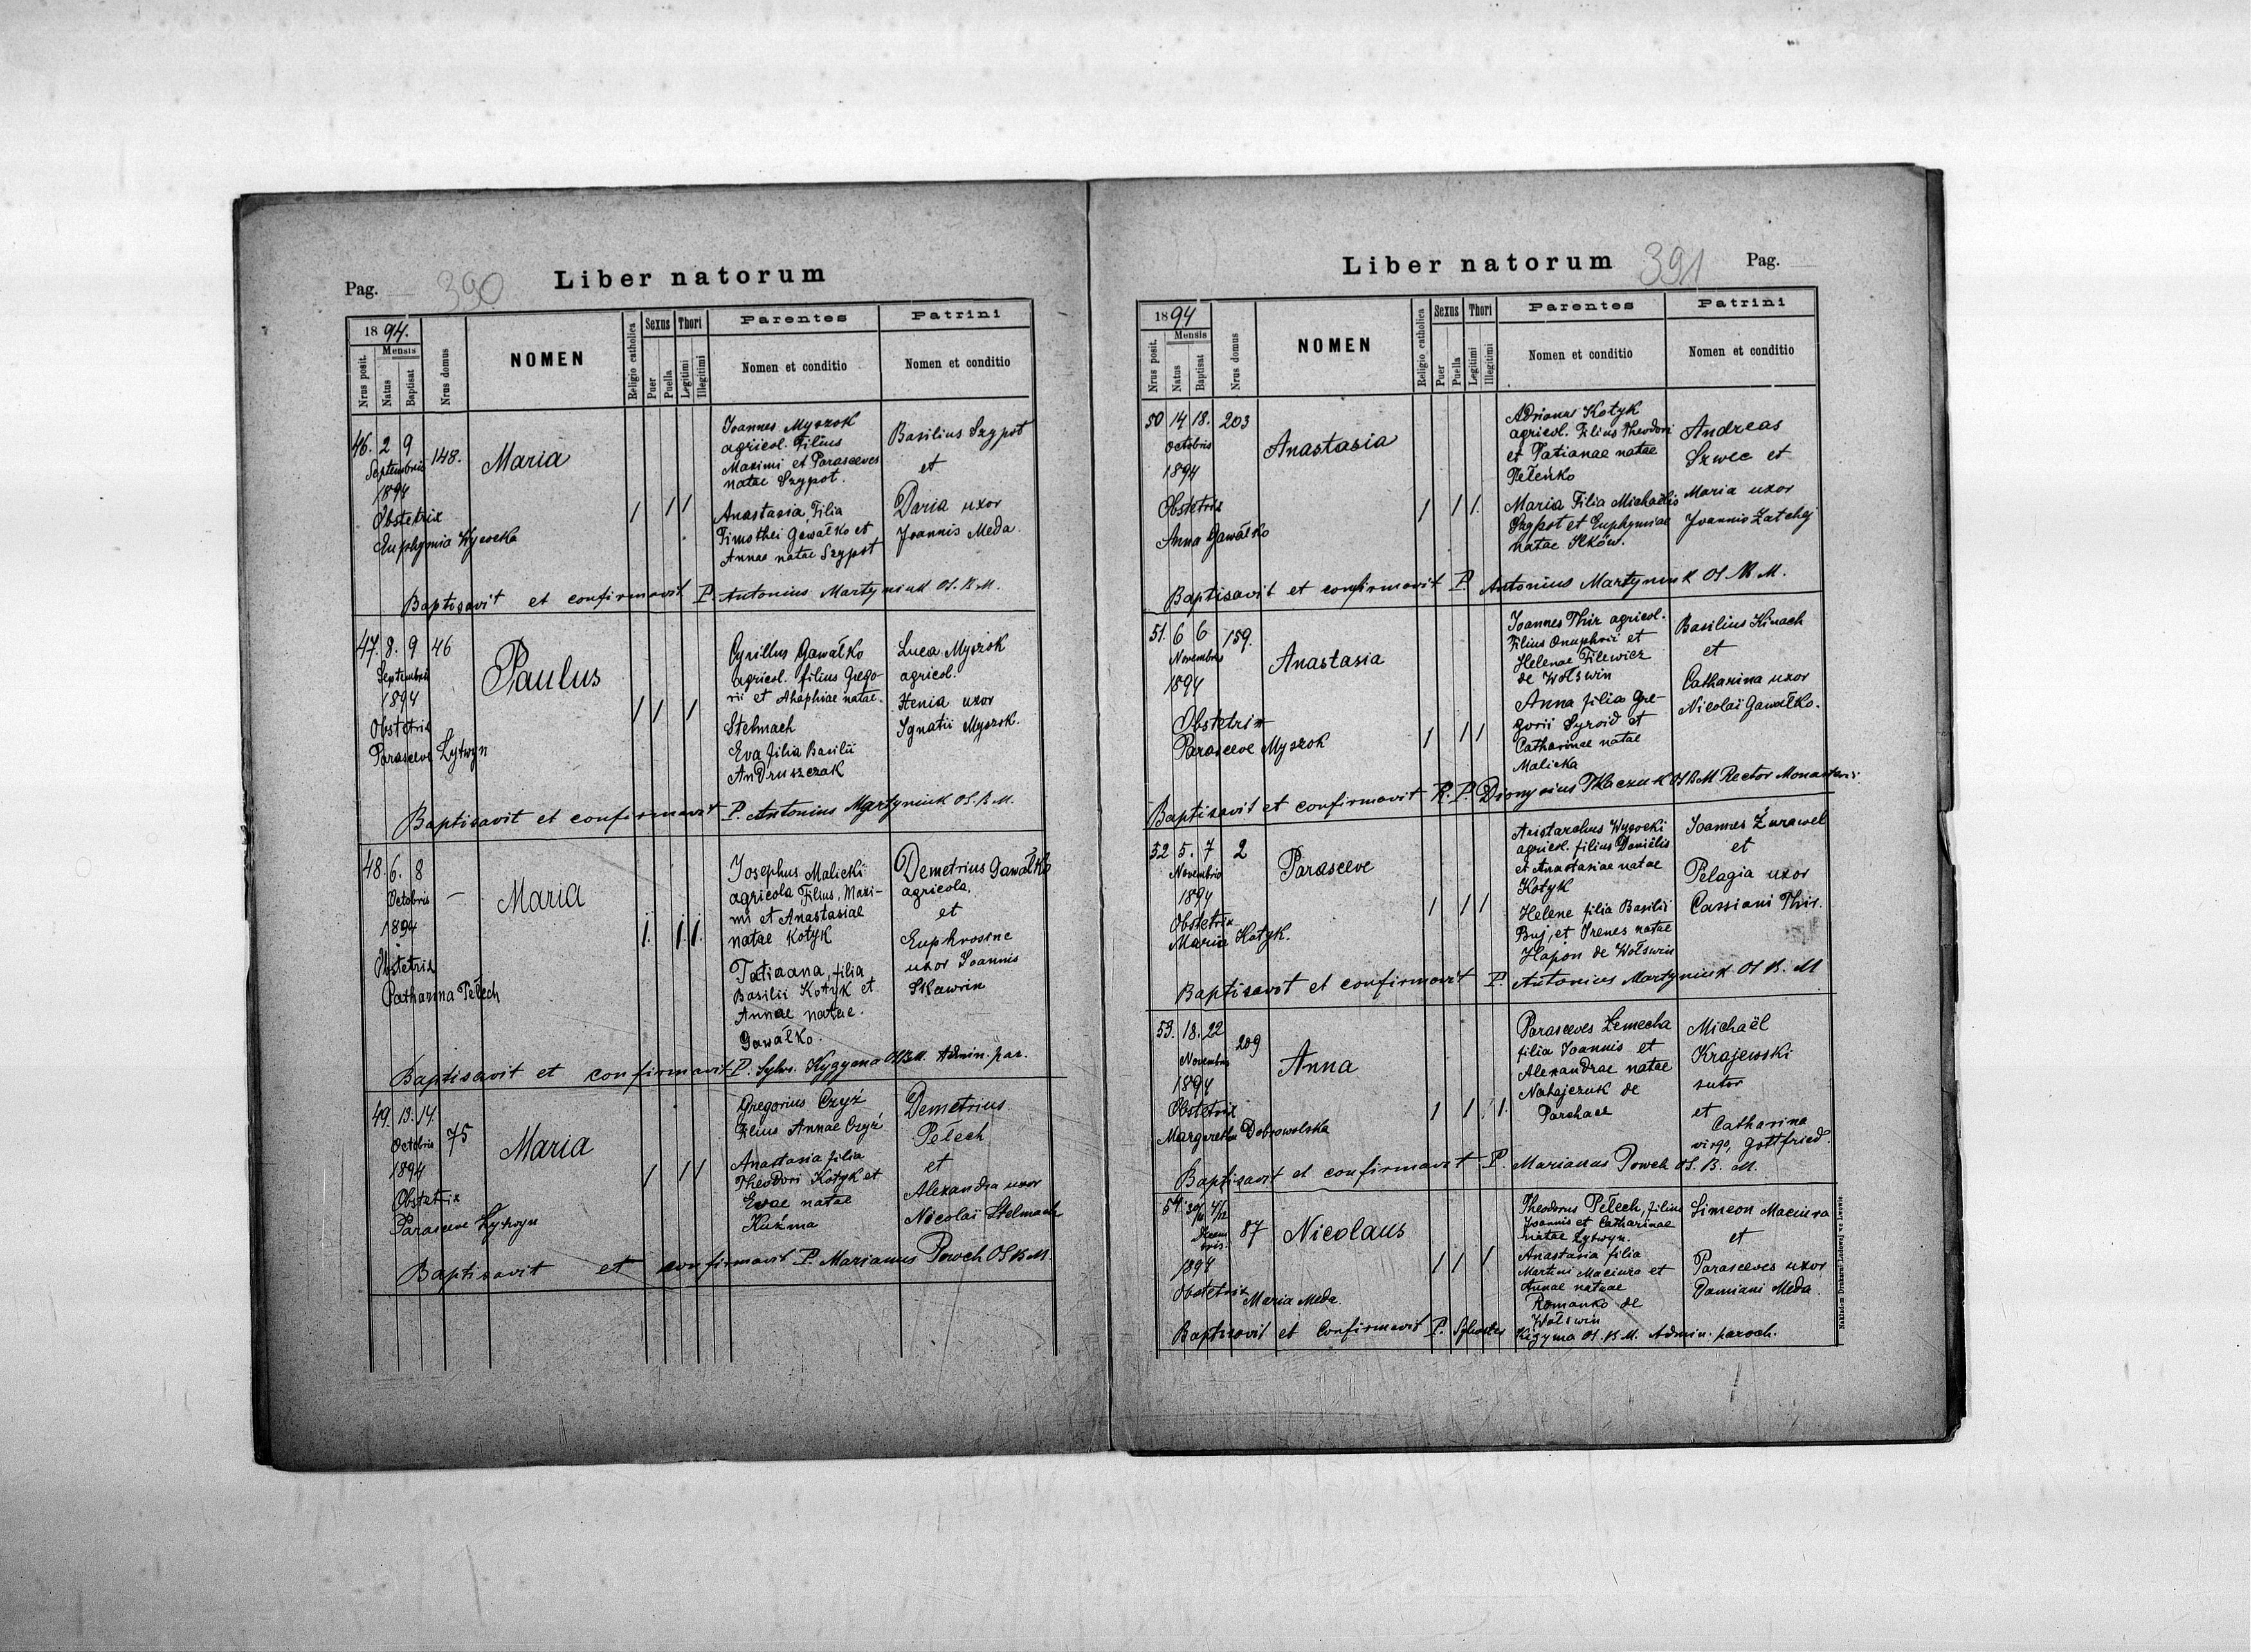 Pag. 390 Liber natorum
1894.
Nrus posit. Mensis Natus Baptisat Nrus domus NOMEN Religio catholica Sexus Puer Puella Thori Legitimi Illegitimi Parentes Nomen et conditio Patrini Nomen et conditio
46. 2 9 148. Maria
Septembris
1894
Obstetrix
Euphymia Wysocka
1 1 1
Joannes Myszok
agricol. Filius
Maximi et Parasceves
natae Szypot.
Anastasia, Filia
Timothei Gawałko et
Annae natae Szypot
Basilius Szypot
et
Daria uxor
Joannis Meda.
Baptisavit et confirmavit P. Antonius Martyniuk O.S.B.M.
47. 8. 9 46 Paulus
Septembris
1894
Obstetrix
Parasceve Lytwyn
1 1 1
Cyrillus Gawałko
agricol. filius Grego-
rii et Ahaphiae natae.
Stelmach
Eva filia Basilii
Andruszczak
Luca Myszok
agricol.
Xenia uxor
Ignatii Myszok.
Baptisavit et confirmavit P. Antonius Martyniuk O.S.B.M.
48. 6. 8 — Maria
Octobris
1894
Obstetrix
Catharina Pełech
1. 1. 1.
Josephus Malicki
agricola Filius, Maxi-
mi et Anastasiae
natae Kotyk
Tatiaana, filia
Basilii Kotyk et
Annae natae.
Gawałko.
Demetrius Gawałko
agricola,
et
Euphrosine
uxor Joannis
Skawrin
Baptisavit et confirmavit P. Sylw. Kyzyma O.S.B.M. Admin. par.
49. 13. 14. 75 Maria
Octobris
1894
Obstetrix
Parasceve Lytwyn
1 1 1
Gregorius Czyż
Filius Annae Czyż
Anastasia filia
Theodori Kotyk et
Evae natae
Kuźma
Demetrius
Pełech
et
Alexandra uxor
Nicolai Stelmach
Baptisavit et confirmavit P. Marianus Powch O.S.B.M.
Liber natorum 391 Pag.
1894
Nrus posit. Mensis Natus Baptisat Nrus domus NOMEN Religio catholica Sexus Puer Puella Thori Legitimi Illegitimi Parentes Nomen et conditio Patrini Nomen et conditio
50 14 18. 203 Anastasia
Octobris
1894
Obstetrix
Anna Gawałko
1 1 1.
Adrianus Kotyk
agricol. Filius Theodori
et Tatianae natae
Pełeńko
Maria Filia Michaëlis
Szypot et Euphymiae
natae Ilków.
Andreas
Szwec et
Maria uxor
Joannis Zatchej
Baptisavit et confirmavit P. Antonius Martyniuk O.S.B.M.
51. 6 6 159. Anastasia
Novembris
1894
Obstetrix
Parasceve Myszok
1 1 1
Joannes Thir agricol.
Filius Onuphrii et
Helenae Filewicz
de Wołswin
Anna filia Gre-
gorii Syroid et
Catharinae natae
Malicka
Basilius Kinach
et
Catharina uxor
Nicolaï Gawałko.
Baptisavit et confirmavit R. P. Dionysius Tkaczuk O.S.B.M. Rector Monasterii
52 5. 7 2 Parasceve
Novembris
1894
Obstetrix
Maria Kotyk.
1 1 1
Aristarchus Wysocki
agricol. filius Daniëlis
et Anastasiae natae
Kotyk
Helene filia Basilii
Buj, et Irenes natae
Hapon de Wołswin
Joannes Żurawel
et
Pelagia uxor
Cassiani Thir.
Baptisavit et confirmavit P. Antonius Martyniuk O.S.B.M
53. 18. 22 209 Anna
Novembris
1894
Obstetrix
Margaretha Dobrowolska
1 1. 1.
Parasceves Lemecha
filia Joannis et
Alexandrae natae
Nahajczuk de
Parchacz
Michaël
Krajewski
sutor
et
Catharina
virgo, Gottfried.
Baptisavit et confirmavit P. Marianus Powch O.S.B.M.
54. 30/11 4/12 87 Nicolaus
Decem
bris.
1894
Obstetrix Maria Meda.
1 1 1
Theodorus Pełech, filius
Joannis et Catharinae
natae Lytwyn.
Anastasia filia
Martini Maciura et
Annae natae
Romanko de
Wołswin
Simeon Maciura
et
Parasceves uxor
Damiani Meda.
Baptisavit et Confirmavit P. Sylvester Kizyma O.S.B.M. Admin. paroch.
Nakładem Drukarni Ludowej we Lwowie.